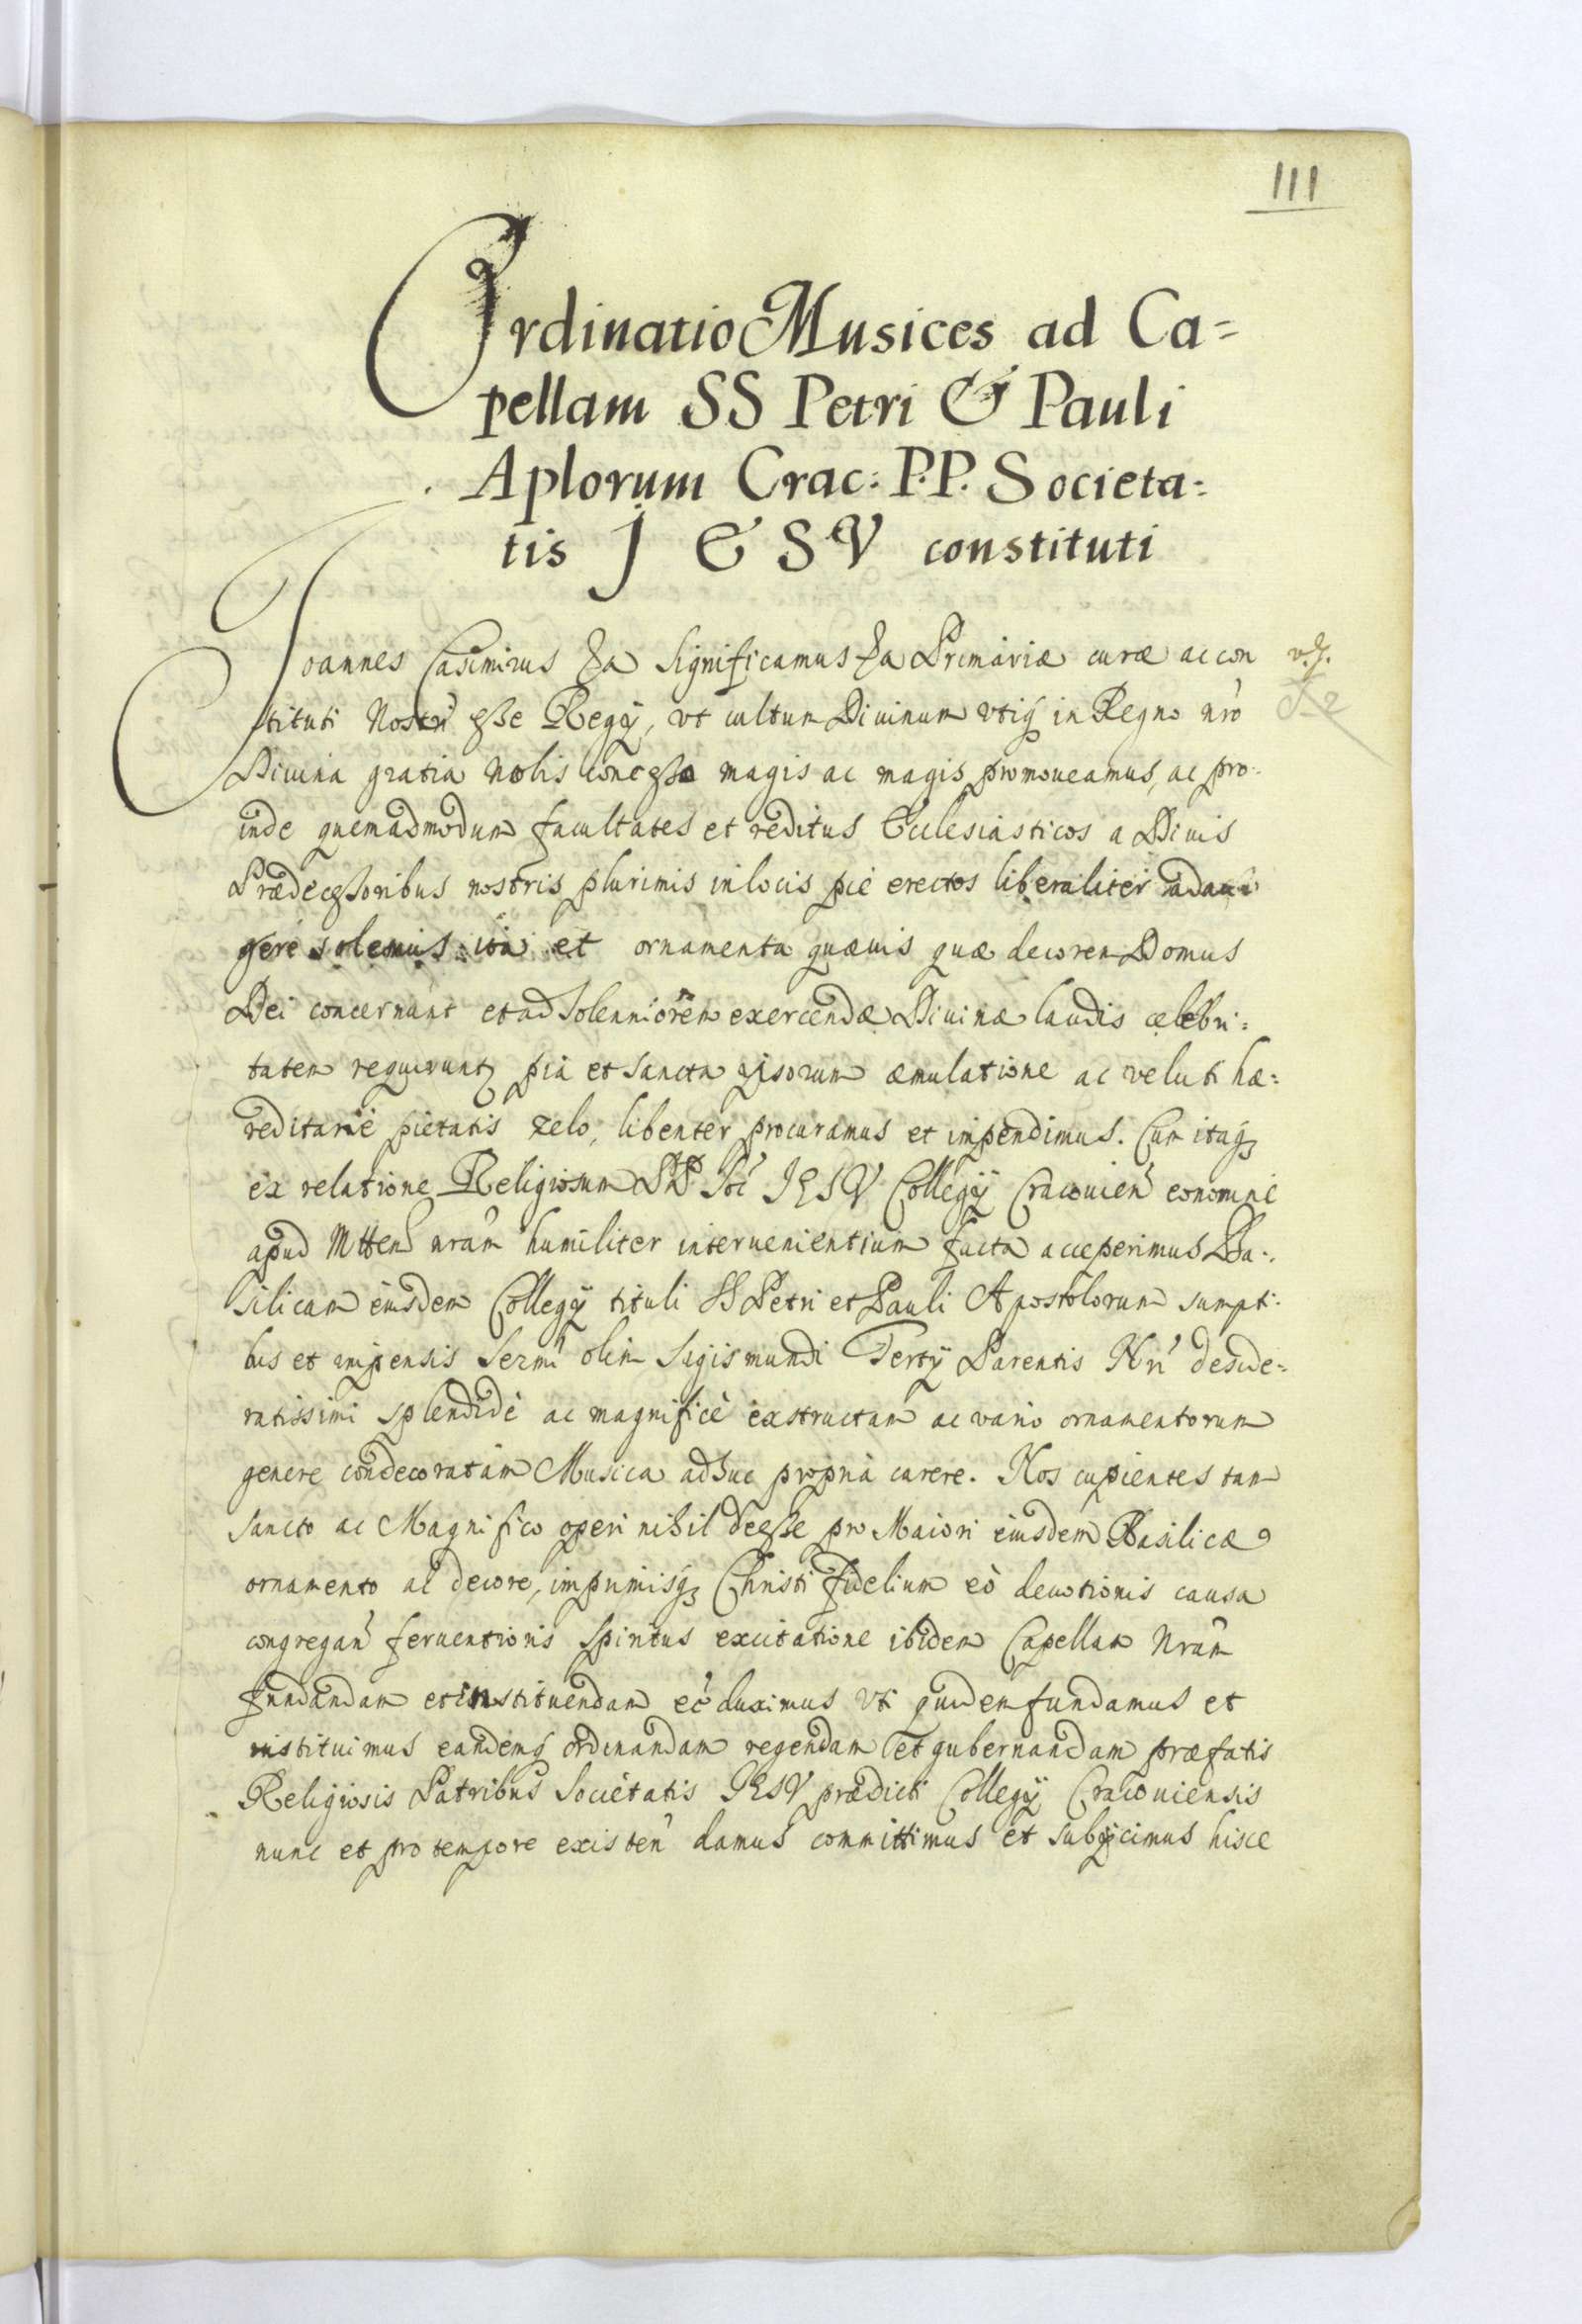 111
Ordinatio Musices ad Ca=
pellam SS Petri & Pauli
Aplorum Crac: P.P. Societa=
tis JESV constituti
Joannes Casimirus &a Significamus &a Primariæ curæ ac con
stituti Nostri esse Regÿ, vt cultum Diuinum vtiq; in Regno nro
Diuina gratia nobis concesso magis ac magis promoueamus, ac pro=
inde quemadmodum facultates et reditus Ecclesiasticos a Diuis
Prædecessoribus nostris plurimis in locis piè erectos liberaliter adau
gere solemus ita et ornamenta quæuis quæ decorem Domus
Dei concernunt et ad solenniorem exercendæ Diuinæ laudis celebri=
tatem requirunt pia et sancta ipsorum æmulatione ac velut hæ=
reditariè pietatis zelo, libenter procuramus et impendimus. Cum itaq;
ex relatione Religiosum PP Soc JESV Collegÿ Cracouien eo nomine
apud Mtten nram humiliter interuenientium facta acceperimus Ba=
silicam eiusdem Collegÿ tituli SS Petri et Pauli Apostolorum sumpti=
bus et impensis Sermi olim Sigismundi Tertÿ Parentis Nri deside=
ratissimi splendidè ac magnificè exstructam ac vario ornamentorum
genere condecoratam Musica adhuc propria carere. Nos cupientes tam
sancto ac Magnifico operi nihil deesse pro Maiori eiusdem Basilicæ
ornamento ac decore, imprimisq; Christi fidelium eò deuotionis causa
congregan feruentioris Spiritus excitatione ibidem Capellam Nram
fundandam et instituendam eè duximus vti quidem fundamus et
instituimus eandemq; ordinandam regendam et gubernandam præfatis
Religiosis Patribus Societatis JESV prædicti Collegÿ Cracouiensis
nunc et pro tempore existen damus committimus et subÿcimus hisce